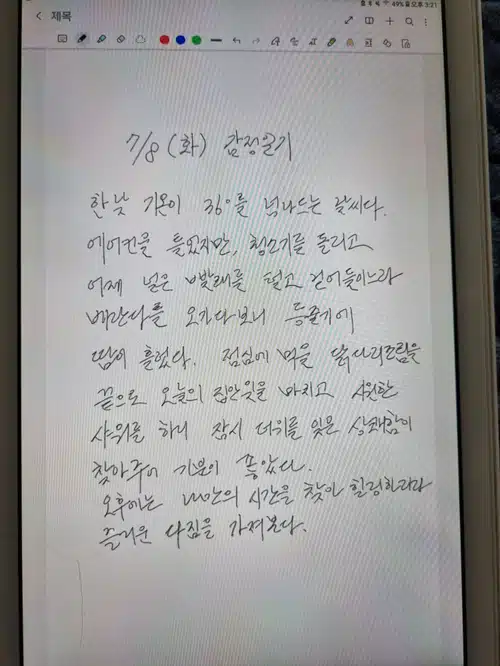 제목
49% 오후 3:21
7/8 (화) 감정일기
한낮 기온이 36°를 넘나드는 날씨다.
에어컨을 틀었지만, 청소기를 돌리고
어제 널은 빨래를 털고 걷어들이느라
베란다를 오가다보니 등줄기에
땀이 흘렀다. 점심에 먹을 닭다리조림을
끝으로 오늘의 집안일을 마치고 시원한
샤워를 하니 잠시 더위를 잊은 상쾌함이
찾아주어 기분이 좋았다.
오후에는 나만의 시간을 찾아 힐링하리라
즐거운 다짐을 가져본다.